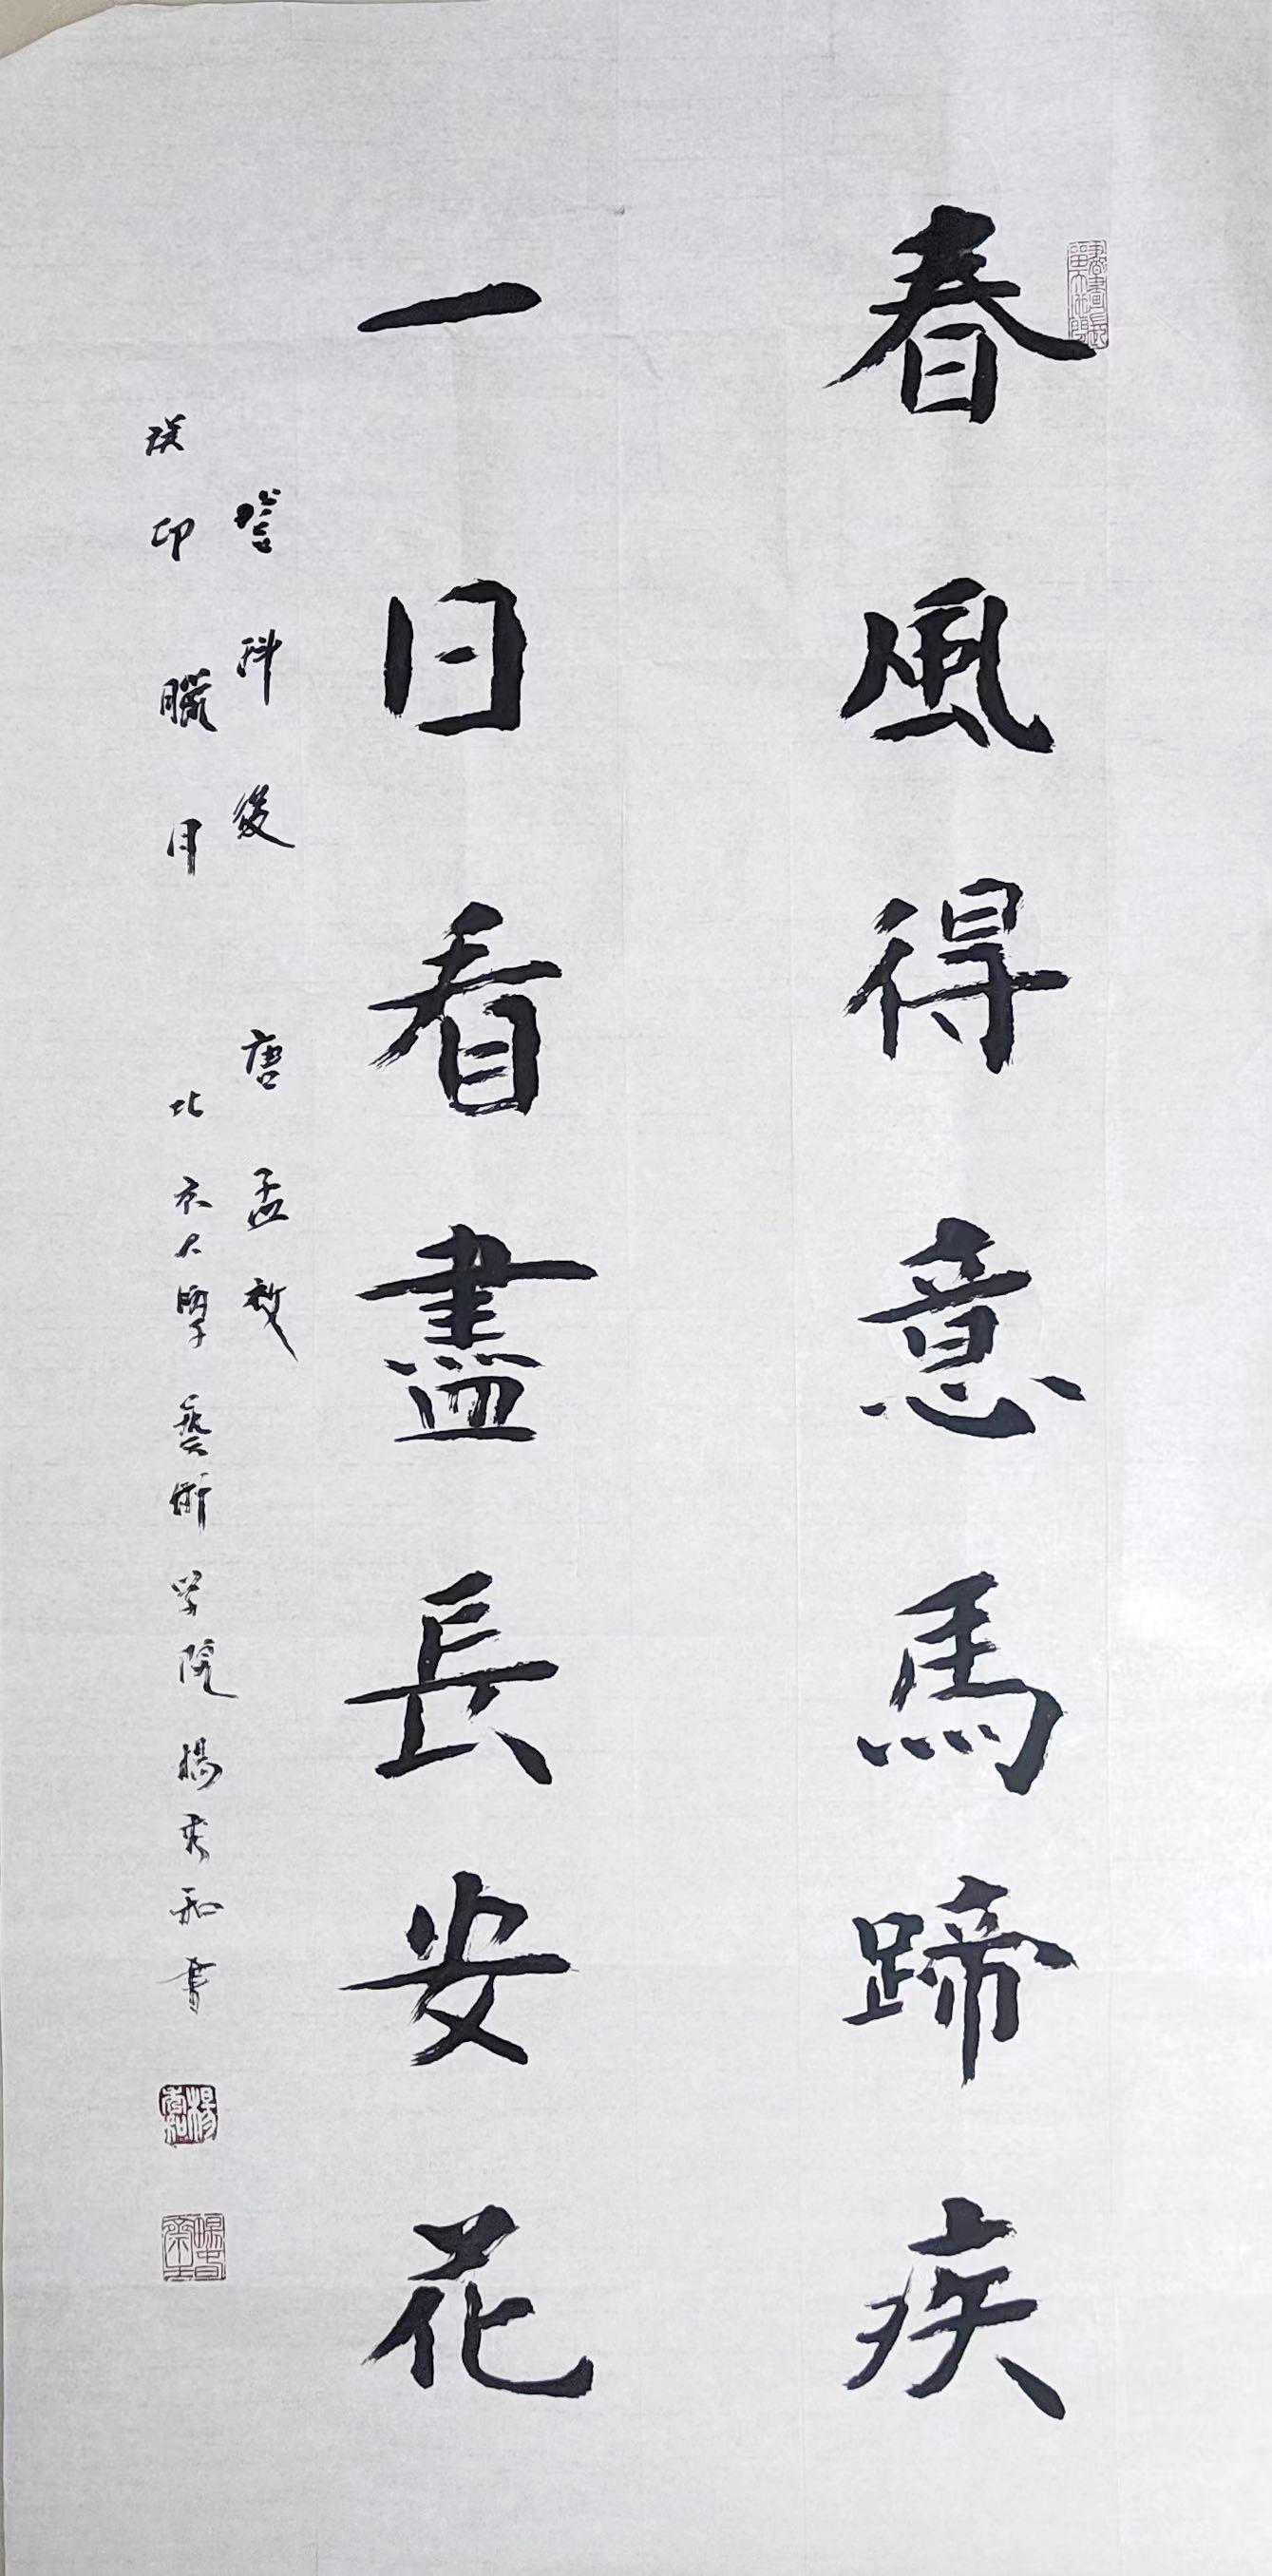 春風得意馬蹄疾
一日看盡長安花
登科後 唐 孟郊
癸卯臘月 北京大學藝術学院 楊秀和書